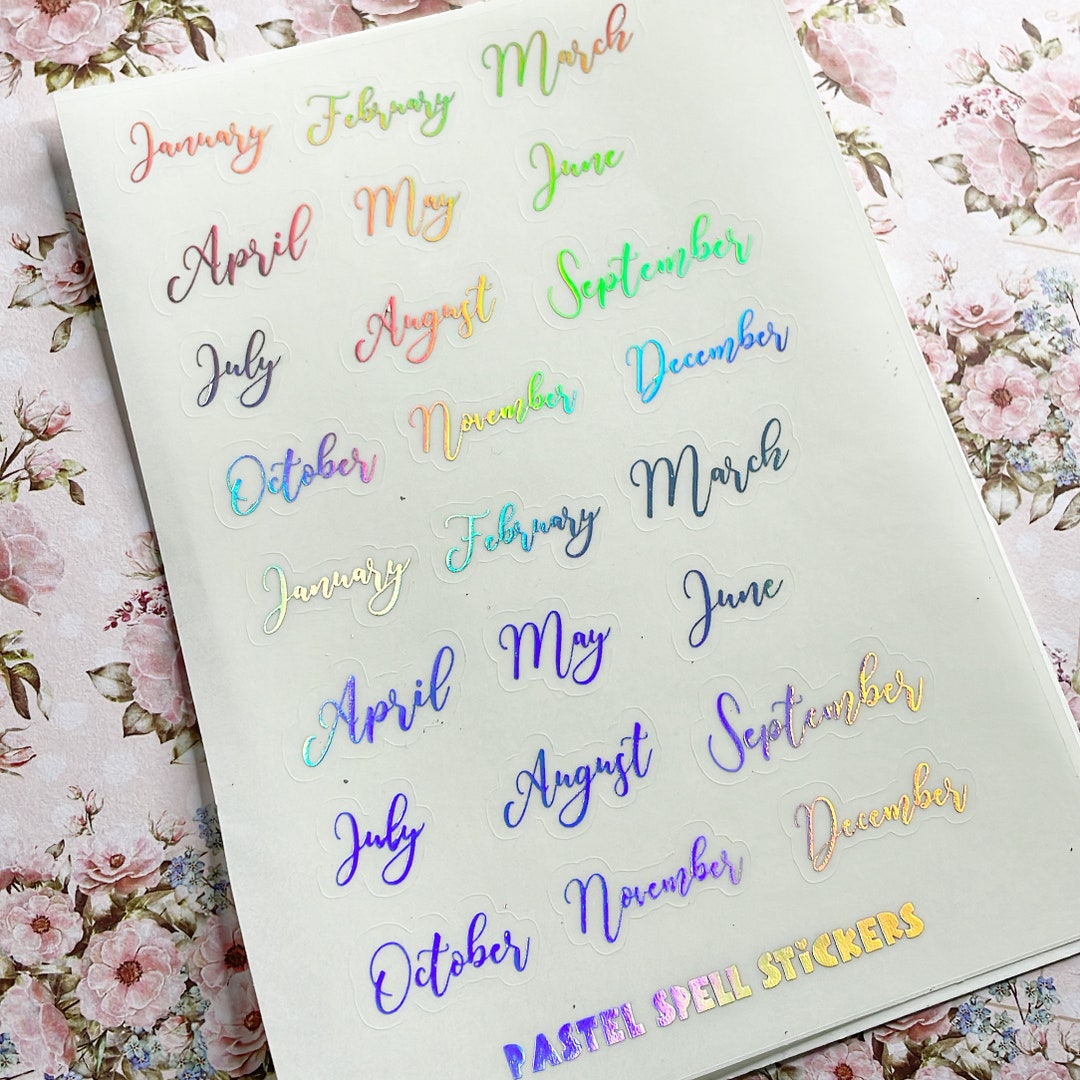 January February March
April May June
July August September
October November December
January February March
April May June
July August September
October November December
PASTEL SPELL STiCKERS